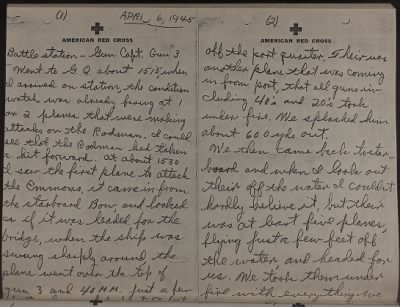 (1) APRIL 6, 1945
AMERICAN RED CROSS
Battle station - Gun Capt. Gun 3
- Went to G.Q. about 1515 when
I arrived on station, the condition
watch was already firing at 1
or 2 planes that were making
attacks on the Rodman. I could
see that the Rodman had taken
a hit forward. At about 1530
I saw the first plane to attack
the Emmons, it came in from
the starboard Bow, and looked
as if it was headed for the
bridge, when the ship was
swung sharply around the
plane went over the top of
gun 3 and 40 M.M. just a few
(2)
AMERICAN RED CROSS
off the port quarter. Their was
another plane that was coming
in from port, that all guns in-
cluding 40's and 20's took
under fire. We splashed him
about 600 yds out.
We then came back to star-
board and when I looked out
their off the water I couldn't
hardly believe it, but their
was at least five planes,
flying just a few feet off
the water and headed for
us. We took them under
fire with everything we